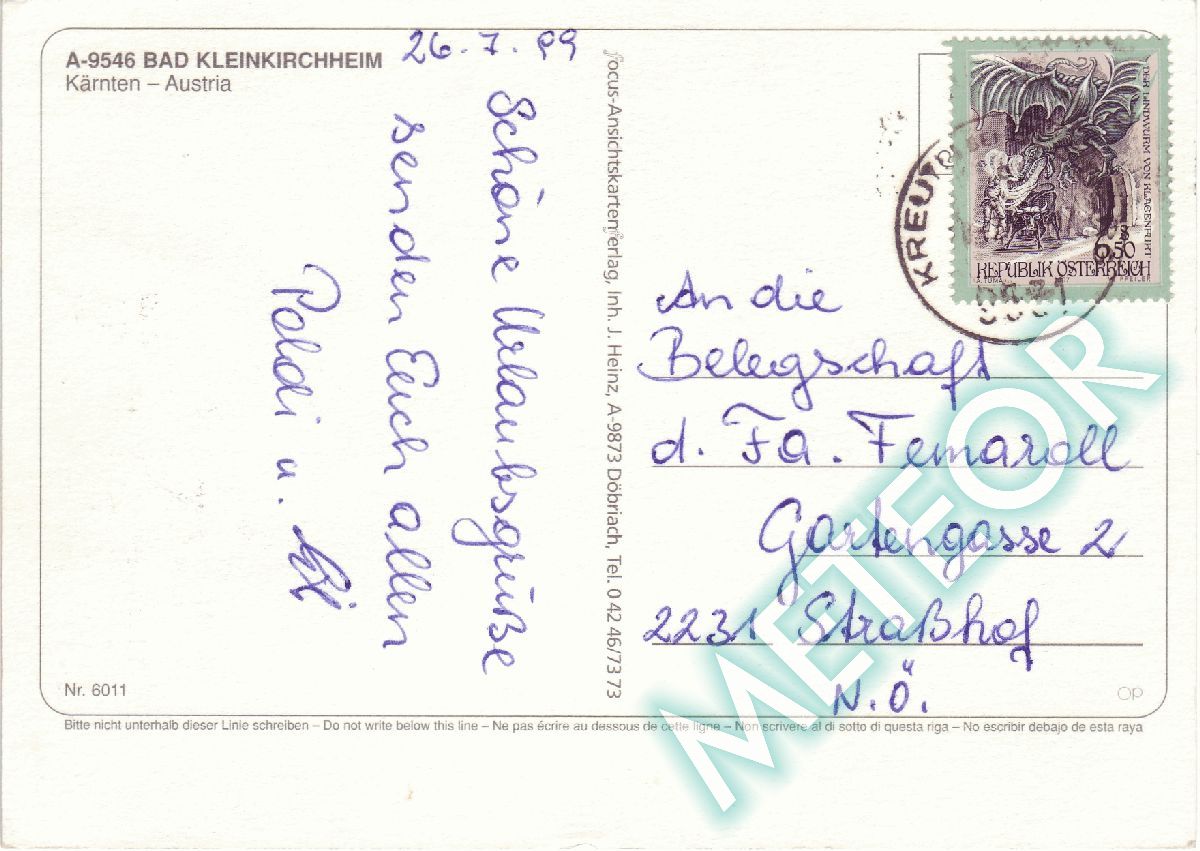 A-9546 BAD KLEINKIRCHHEIM
Kärnten – Austria
26. 7. 99
Schöne Urlaubsgrüße
senden Euch allen
Poldi u.
Nr. 6011
focus-Ansichtskartenverlag, Inh. J. Heinz, A-9873 Döbriach, Tel. 0 42 46/73 73
DER LINDWURM VON KLAGENFURT
6,50
REPUBLIK ÖSTERREICH
An die
Belegschaft
d. Fa. Femaroll
Gartengasse 2
2231 Straßhof
N.Ö.
OP
Bitte nicht unterhalb dieser Linie schreiben – Do not write below this line – Ne pas écrire au dessous de cette ligne – Non scrivere al di sotto di questa riga – No escribir debajo de esta raya
METEOR